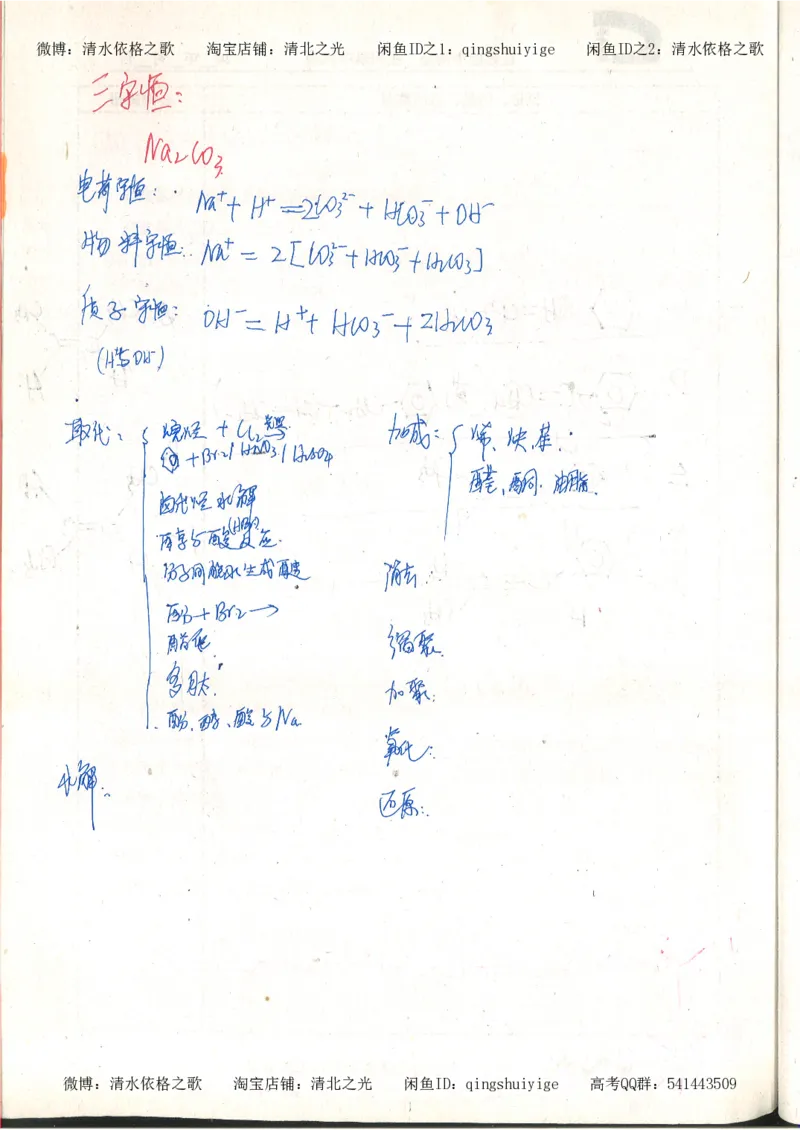 微博：清水依格之歌 淘宝店铺：清北之光 闲鱼ID之1：qingshuiyige 闲鱼ID之2：清水依格之歌
三守恒：
Na₂CO₃
电荷守恒： Na⁺ + H⁺ = 2CO₃²⁻ + HCO₃⁻ + OH⁻
物料守恒： Na⁺ = 2[CO₃²⁻ + HCO₃⁻ + H₂CO₃]
质子守恒： OH⁻ = H⁺ + HCO₃⁻ + 2H₂CO₃
(H⁺与OH⁻)
取代：
烷烃 + Cl₂ 光照→
+ Br₂ / HNO₃ / H₂SO₄
卤代烃水解
醇与酸(HBr)反应.
分子间脱水生成醚
酚 + Br₂ →
酯化
多肽.
酚、醇、酸与Na.
水解：
加成：
烯、炔、苯.
醛、酮. 油脂.
消去：
缩聚.
加聚：
氧化：
还原：
微博：清水依格之歌 淘宝店铺：清北之光 闲鱼ID：qingshuiyige 高考QQ群：541443509